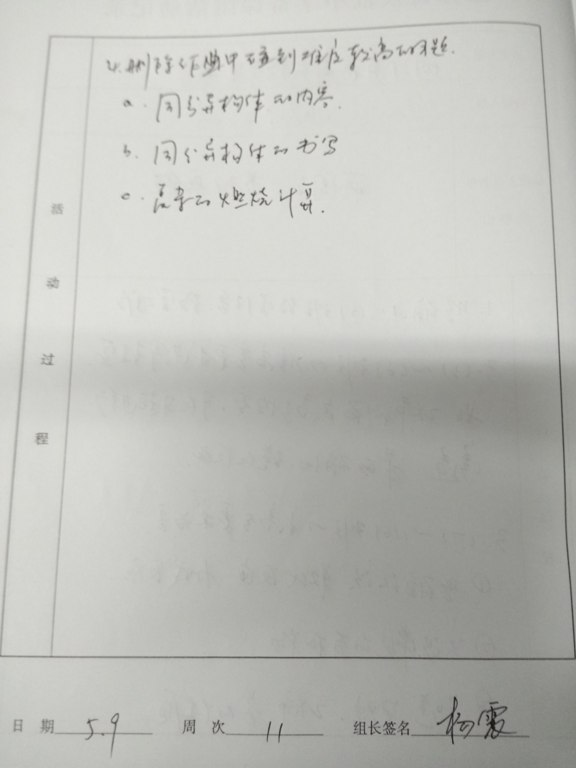 4.删除作业中碰到难度较高的问题.
a.同分异构体的内容.
b.同分异构体的书写
c.复杂的燃烧计算.
活动过程
日期 5.9 周次 11 组长签名 杨震